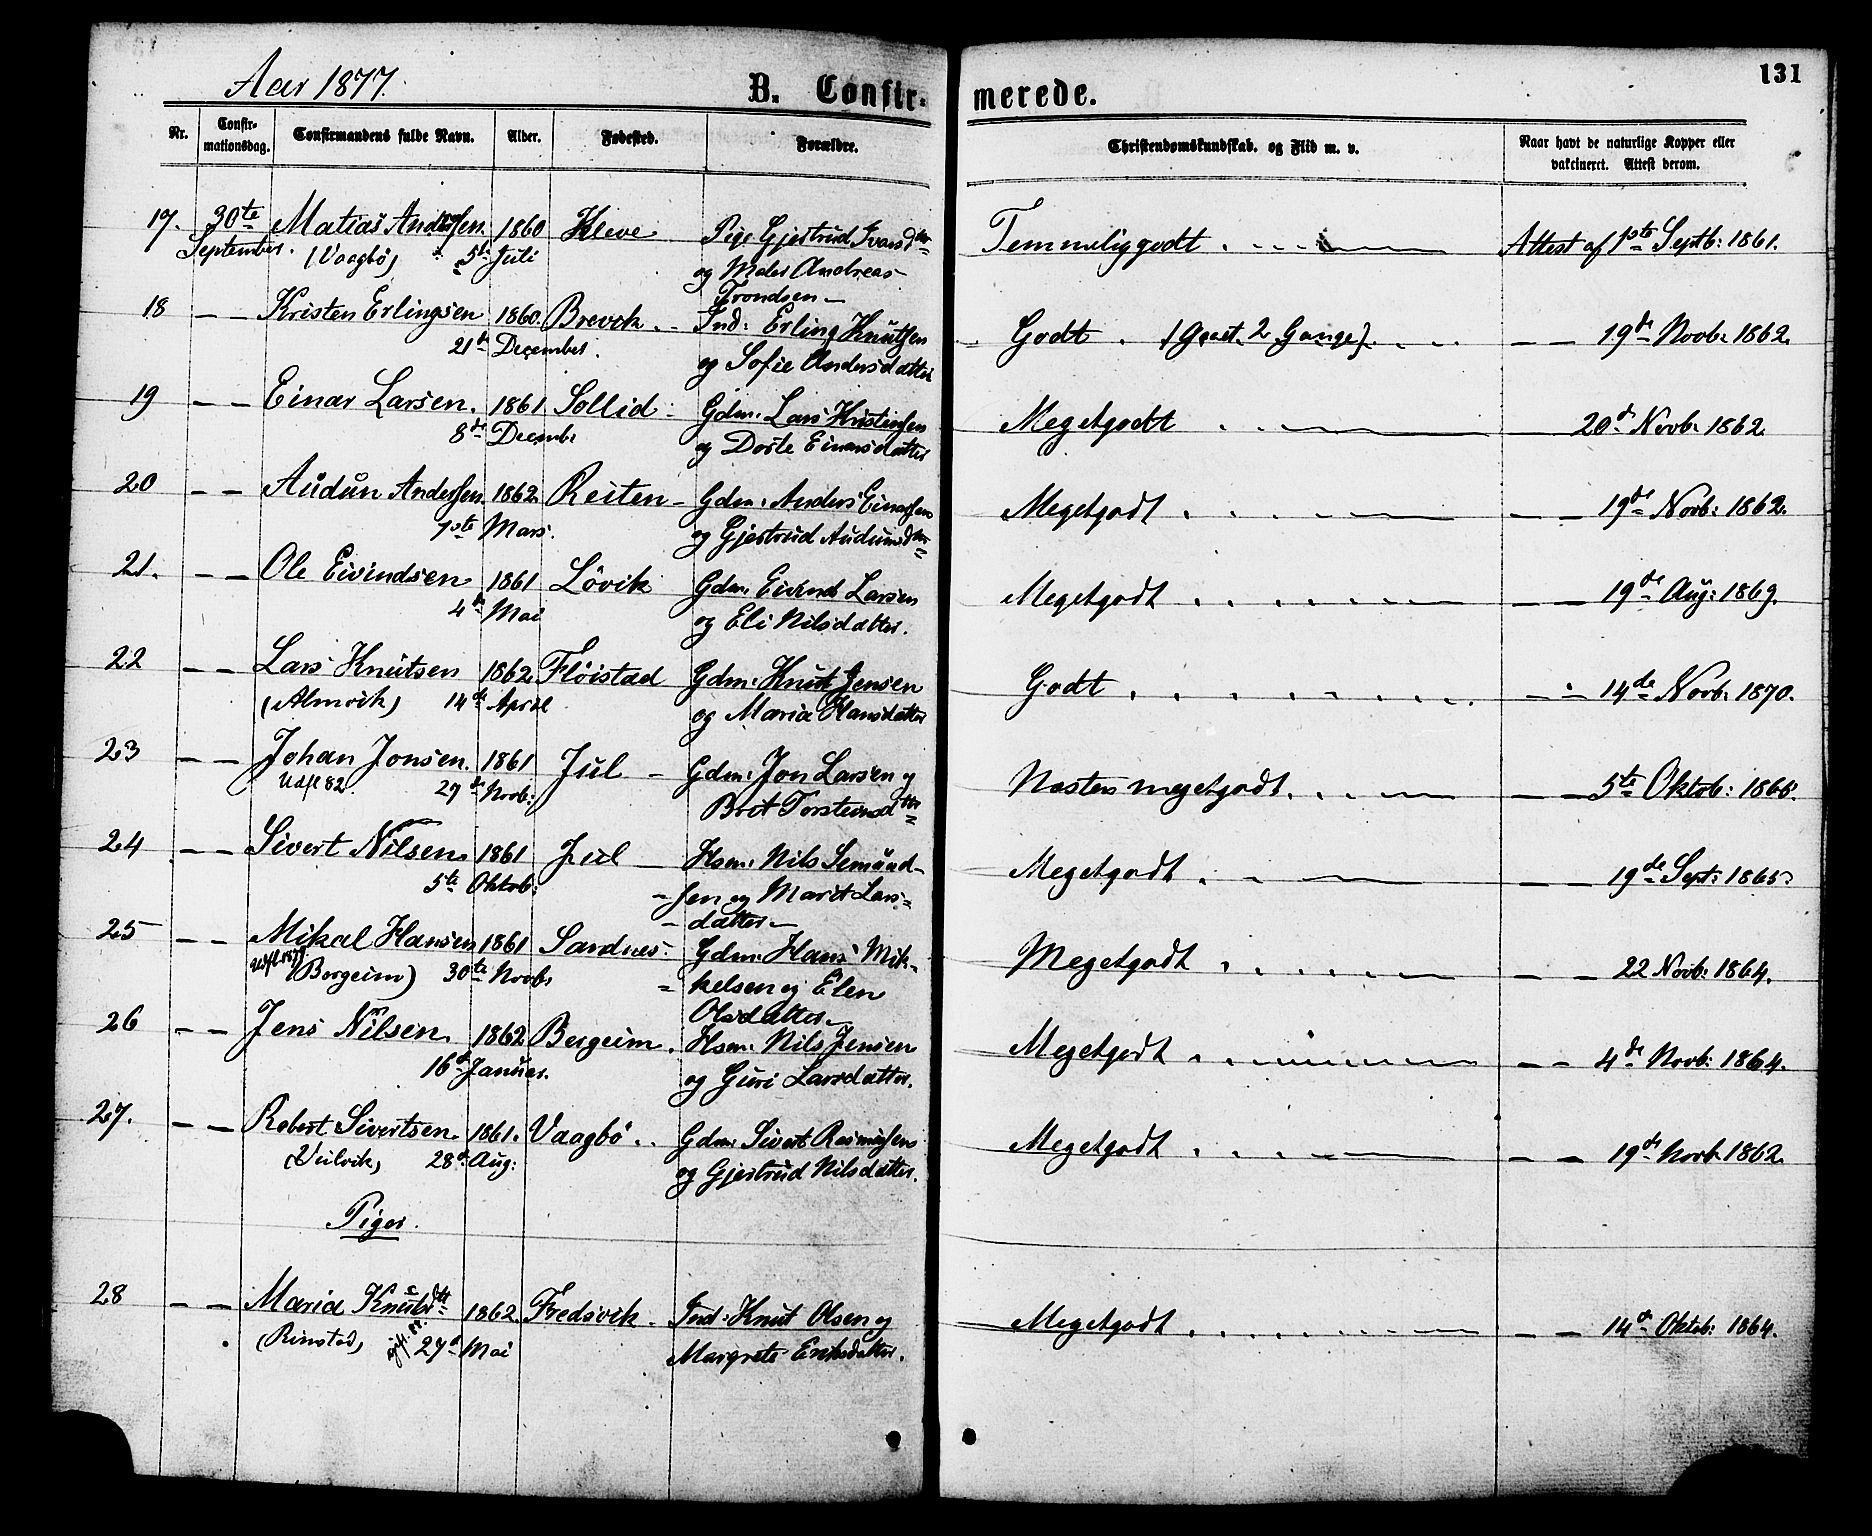 Aar 1877.
B. Confirmerede.
131
Nr.
Confirmationsdag.
Confirmandens fulde Navn.
Alder.
Fødested.
Forældre.
Christendomskundskab. og Flid m. v.
Naar havt de naturlige Kopper eller
vakcineret. Attest derom.
17. 30te Matias Andersen. 1860 Kleve Pige Gjertrud Ivarsdtr Temmeliggodt Attest af 1ste Septb: 1861.
September. (Vaagbø) 5te Juli og Moder Andreas
Trondsen
18 — — Kristen Erlingsen 1860. Brevik. Ind: Erling Knutsen Godt. (Gaaet 2 Gange) — — 19de Novb: 1862.
21de December. og Sofie Andersdatter
19 — — Einar Larsen. 1861 Sollid Gdm: Lars Kristensen Megetgodt 20de Novb: 1862
8de Decembr og Dorte Einarsdatter
20 — — Audun Andersen 1862 Reiten Gdm: Anders Einarsen Megetgodt — — 19de Novb: 1862.
1ste Mars. og Gjertrud Audunsdtr
21. — — Ole Eivindsen 1861 Løvik Gdm: Eivind Larsen Megetgodt — — 19de Aug: 1869.
4de Mai og Eli Nilsdatter.
22 — — Lars Knutsen 1862. Fløistad Gdm: Knut Jensen Godt — — 14de Novb: 1870.
(Almvik) 14de April og Maria Hansdatter
23 — — Johan Jonsen. 1861 Jul Gdm: Jon Larsen og Næsten megetgodt. — — 5te Oktob: 1865.
Udfl 82 29de Novb: Brit Torsteinsdtr
24 — — Sivert Nilsen. 1861 Jul Hsm: Nils Semund- Megetgodt — — 19de Sept: 1865.
5te Oktob: sen og Marit Lars-
datter
25 — — Mikal Hansen 1861 Sandnes. Gdm: Hans Mik- Megetgodt — — 22 Novb: 1864.
(Bergeim) 30te Novb: kelsen og Elen
Olsdatter
26 — — Jens Nilsen. 1862 Bergeim. Hsm: Nils Jensen Megetgodt — — 4de Novb: 1864.
16de Januar. og Guri Larsdatter.
27. — — Robert Sivertsen. 1861. Vaagbø Gdm: Sivert Rasmussen Megetgodt — — 19de Novb. 1862
28de Aug: og Gjertrud Nilsdatter.
Piger.
28 — — Maria Knutsdtr 1862. Fredsvik Ind: Knut Olsen og Megetgodt — — 14de Oktob: 1864.
(Rinstad) 27de Mai Margrete Eriksdatter.